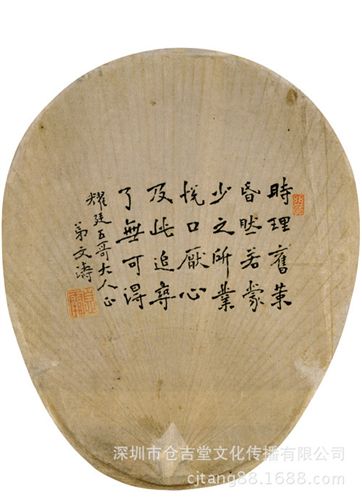 時理舊業
昏然若蒙
少之所業
悅口厭心
及此追尋
了無可得
耀廷五哥大人正
弟文濤
深圳市仓吉堂文化传播有限公司
cjtang88.1688.com